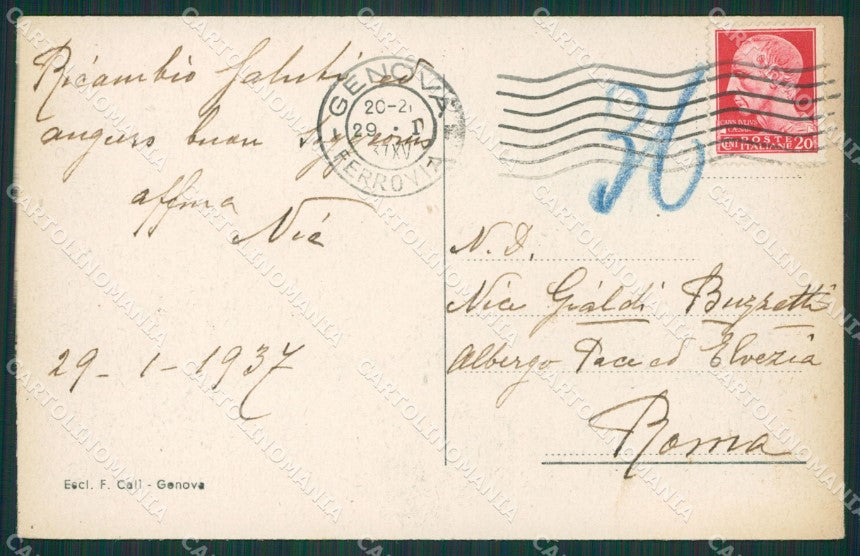 Ricambio saluti ed
auguro buon soggiorno
affma
Nic
29-1-1937
Escl. F. Calì - Genova
GENOVA
20-21
29
XV
FERROVIA
36
POSTE
ITALIANE
CENT 20
N. D.
Nice Gialdi Buzzetti
Albergo Pace ed Elvezia
Roma
CARTOLINOMANIA